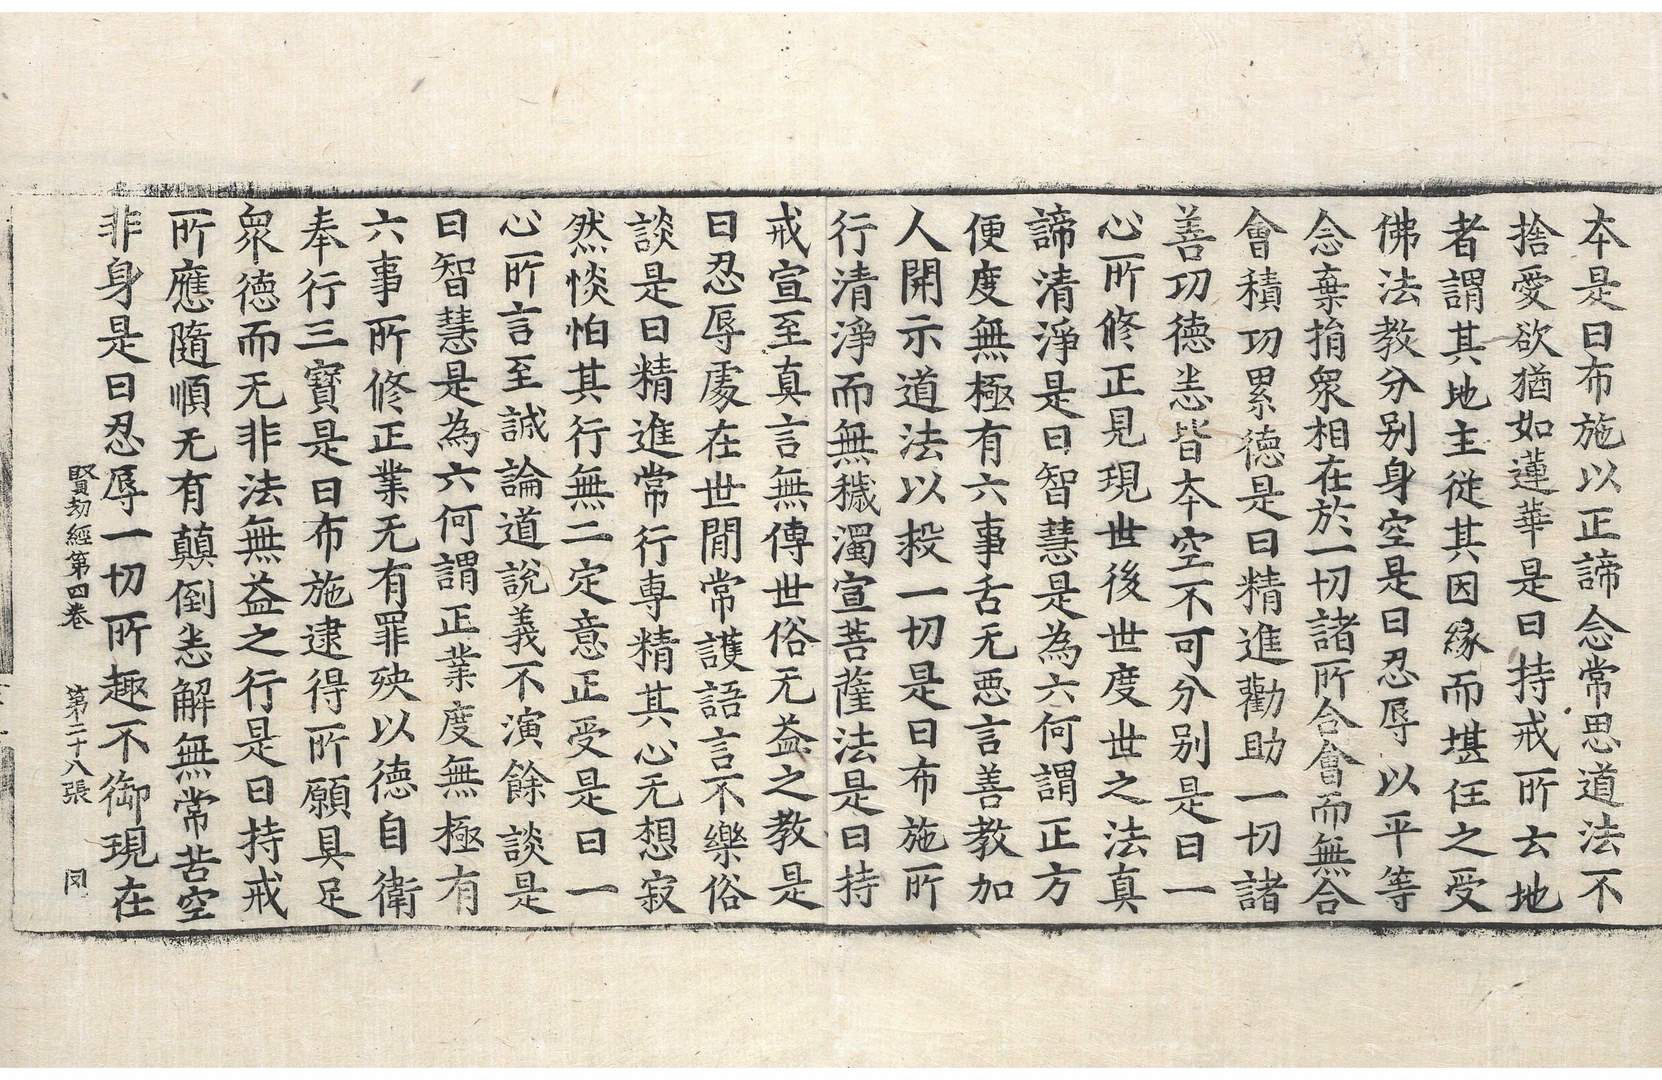 本是曰布施以正諦念常思道法不
捨愛欲猶如蓮華是曰持戒所去地
者謂其地主從其因緣而堪任之受
佛法教分别身空是曰忍辱以平等
念棄捐衆相在於一切諸所合會而無合
會積功累德是曰精進勸助一切諸
善功德悉皆本空不可分别是曰一
心所修正見現世後世度世之法真
諦清淨是曰智慧是為六何謂正方
便度無極有六事舌无惡言善教加
人開示道法以投一切是曰布施所
行清淨而無穢濁宣菩薩法是曰持
戒宣至真言無傳世俗无益之教是
曰忍辱處在世閒常護語言不樂俗
談是曰精進常行専精其心无想寂
然惔怕其行無二定意正受是曰一
心所言至誠論道說義不演餘談是
曰智慧是為六何謂正業度無極有
六事所修正業无有罪殃以德自衛
奉行三寶是曰布施逮得所願具足
衆德而无非法無益之行是曰持戒
所應隨順无有顛倒悉解無常苦空
非身是曰忍辱一切所趣不御現在
賢劫經第四卷 第二十八張 同